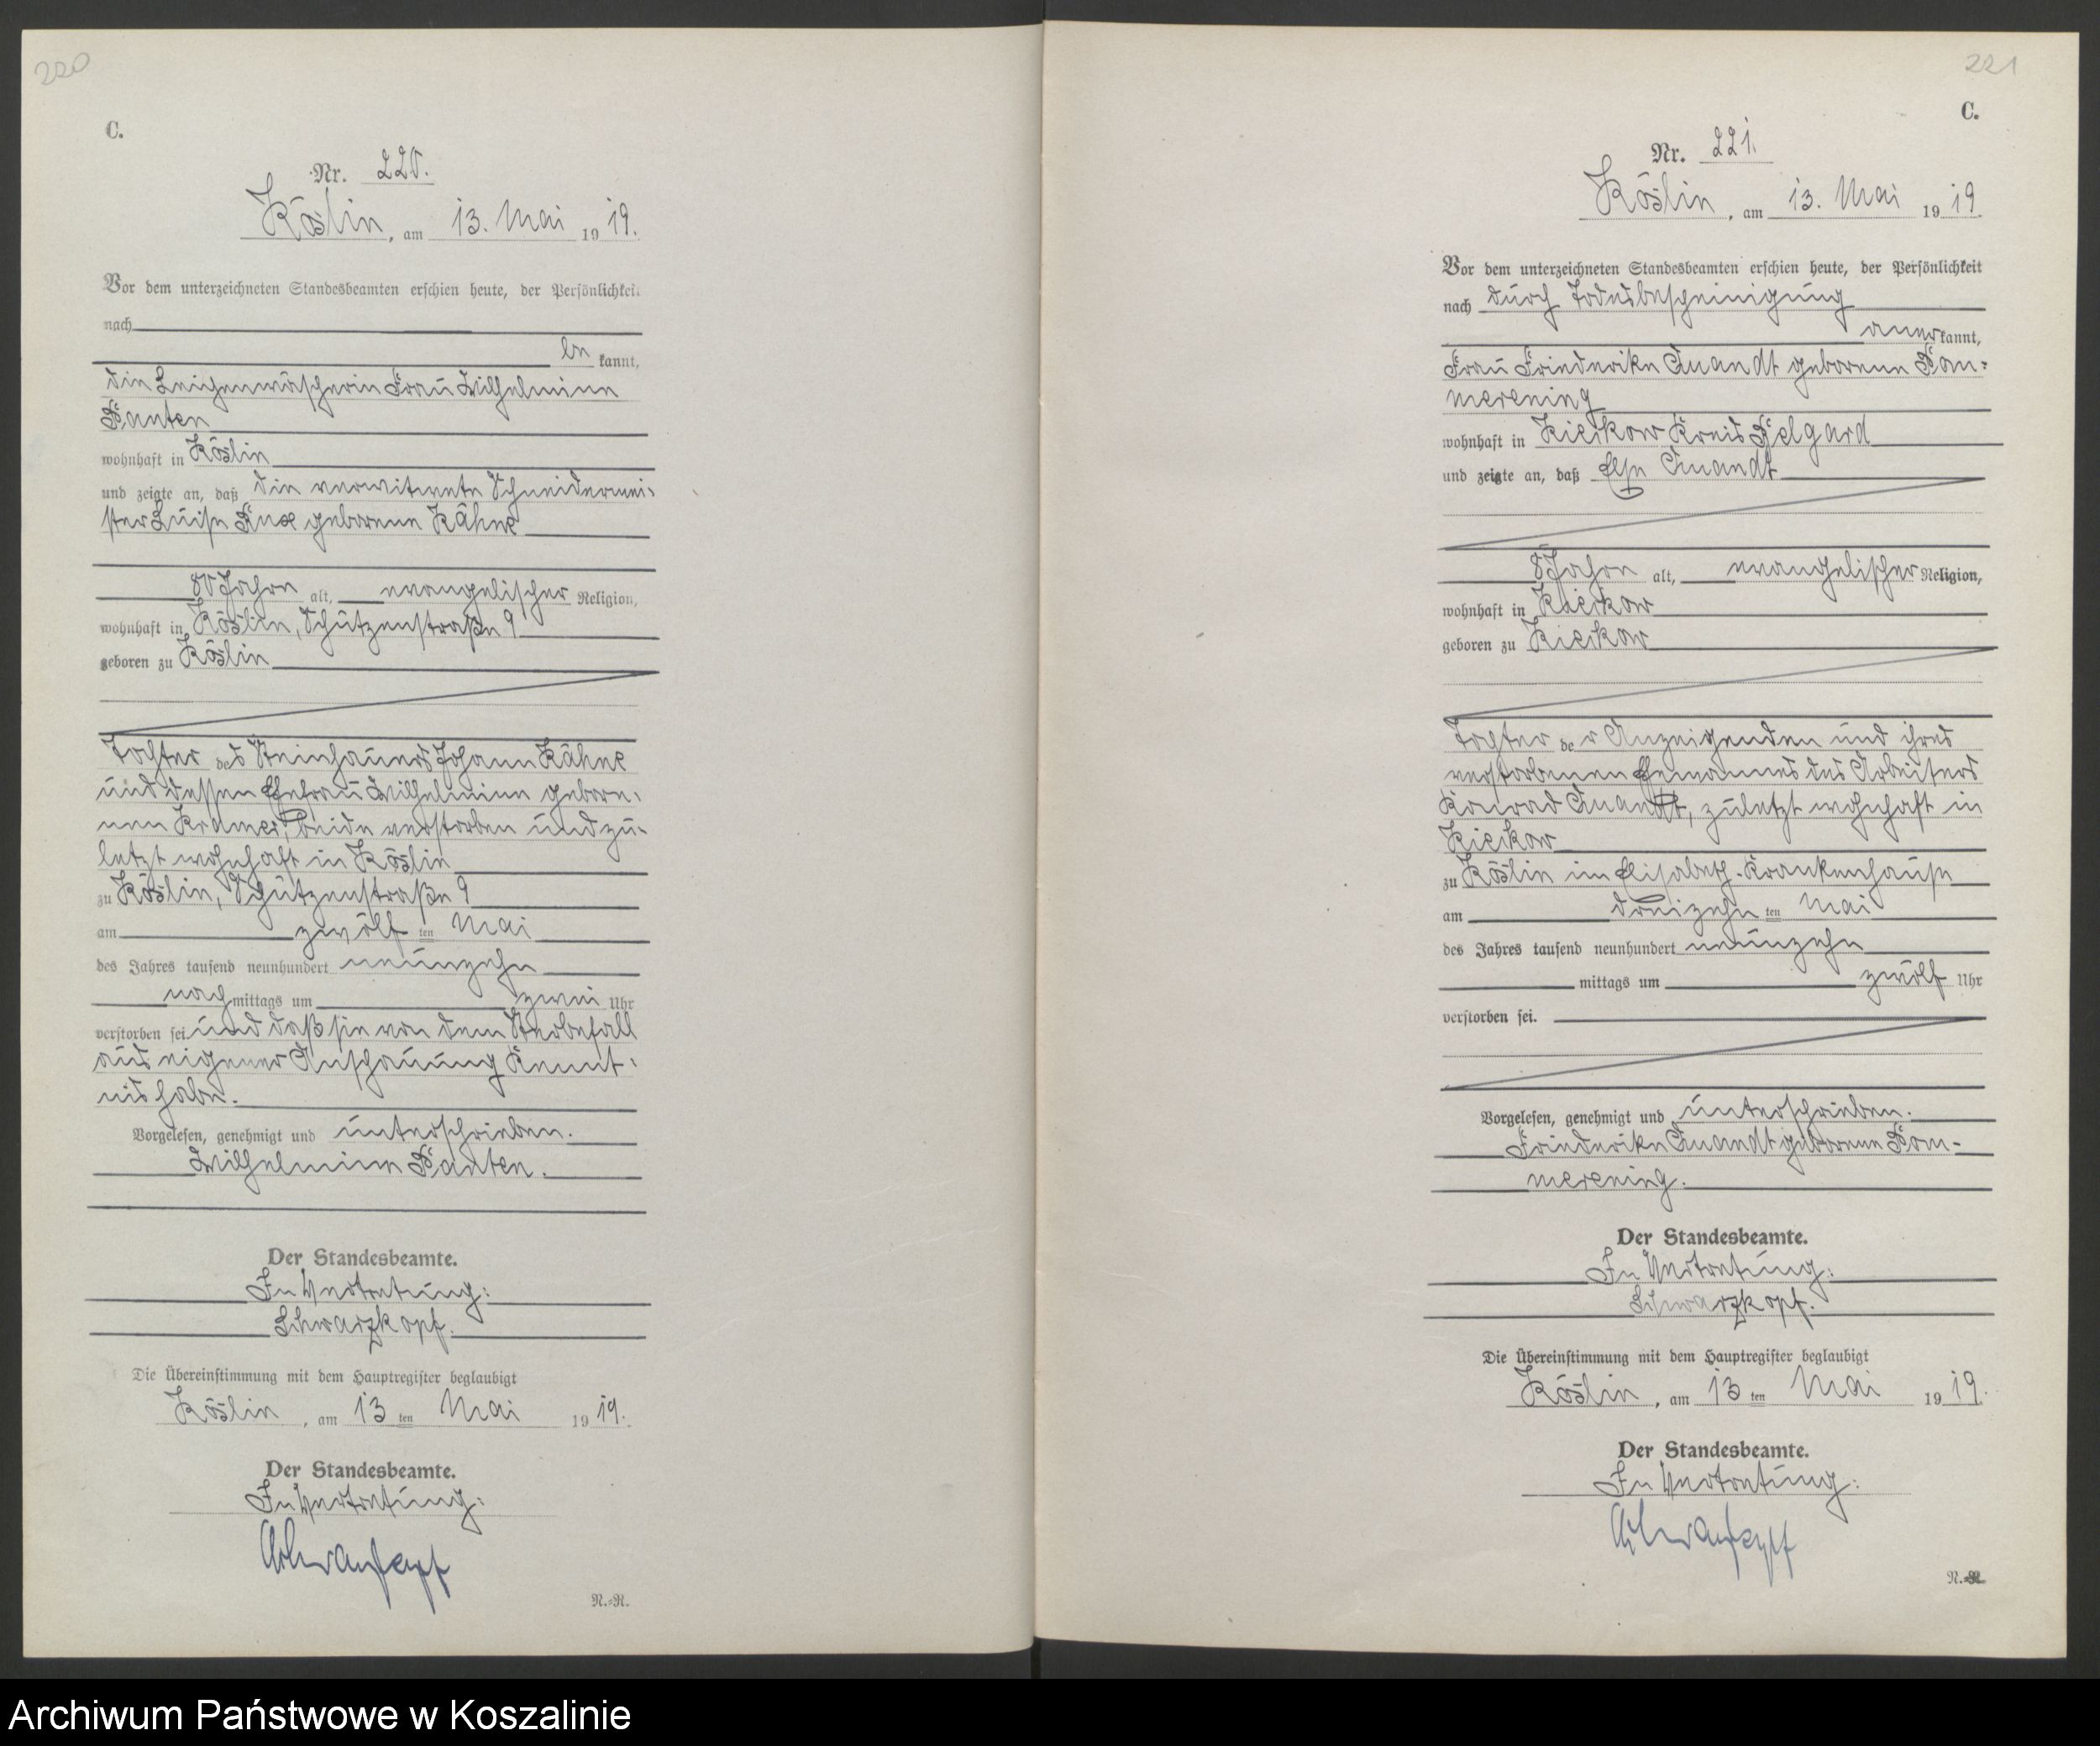 220
C.
Nr. 220.
Köslin, am 13. Mai 1919.
Vor dem unterzeichneten Standesbeamten erschien heute, der Persönlichkeit
nach
be kannt,
die Leichenwäscherin Frau Wilhelmine
Panten
wohnhaft in Köslin
und zeigte an, daß die verwitwete Schneidermei-
ster Luise geborene Kähne
80 Jahre alt, evangelischer Religion,
wohnhaft in Köslin, Schützenstraße 9
geboren zu Köslin
Tochter des Steinhauers Johann Kähne
und dessen Ehefrau Wilhelmine gebore-
nen Kramer, beide verstorben und zu-
letzt wohnhaft in Köslin
zu Köslin, Schützenstraße 9
am zwölf ten Mai
des Jahres tausend neunhundert neunzehn
nach mittags um zwei Uhr
verstorben sei und daß sie von dem Sterbefall
aus eigener Anschauung Kennt-
nis habe.
Vorgelesen, genehmigt und unterschrieben.
Wilhelmine Panten.
Der Standesbeamte.
In Vertretung:
Schwarzkopf.
Die Übereinstimmung mit dem Hauptregister beglaubigt
Köslin, am 13 ten Mai 1919.
Der Standesbeamte.
In Vertretung:
Schwarzkopf
N.-R.
221
C.
Nr. 221.
Köslin, am 13. Mai 1919.
Vor dem unterzeichneten Standesbeamten erschien heute, der Persönlichkeit
nach durch Todesbescheinigung
aner kannt,
Frau Friederike Quandt geborene Pom-
merening
wohnhaft in Kieckow Kreis Belgard
und zeigte an, daß Else Quandt
8 Jahre alt, evangelischer Religion,
wohnhaft in Kieckow
geboren zu Kieckow
Tochter der Anzeigenden und ihres
verstorbenen Ehemannes des Arbeiters
Konrad Quandt, zuletzt wohnhaft in
Kieckow
zu Köslin im Elisabeth-Krankenhause
am dreizehn ten Mai
des Jahres tausend neunhundert neunzehn
mittags um zwölf Uhr
verstorben sei.
Vorgelesen, genehmigt und unterschrieben.
Friederike Quandt geborene Pom-
merening.
Der Standesbeamte.
In Vertretung:
Schwarzkopf.
Die Übereinstimmung mit dem Hauptregister beglaubigt
Köslin, am 13 ten Mai 1919.
Der Standesbeamte.
In Vertretung:
Schwarzkopf
N.-R.
Archiwum Państwowe w Koszalinie